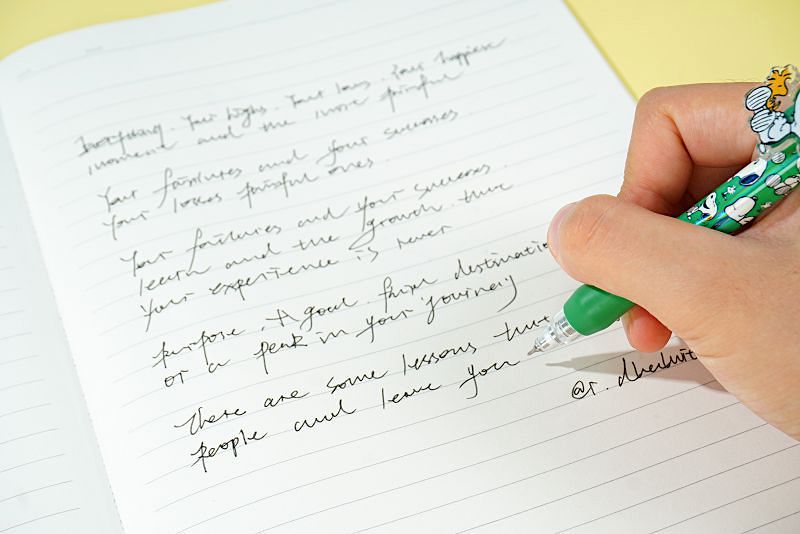 Your highs. Your lows. Your happiest
moment and the more painful
Your failures and your successes
Your losses painful ones.
Your failures and your success
learn and the growth that
Your experience is never
purpose. A goal. from destination
or a peak in your journey
There are some lessons that
people and leave you
@r.